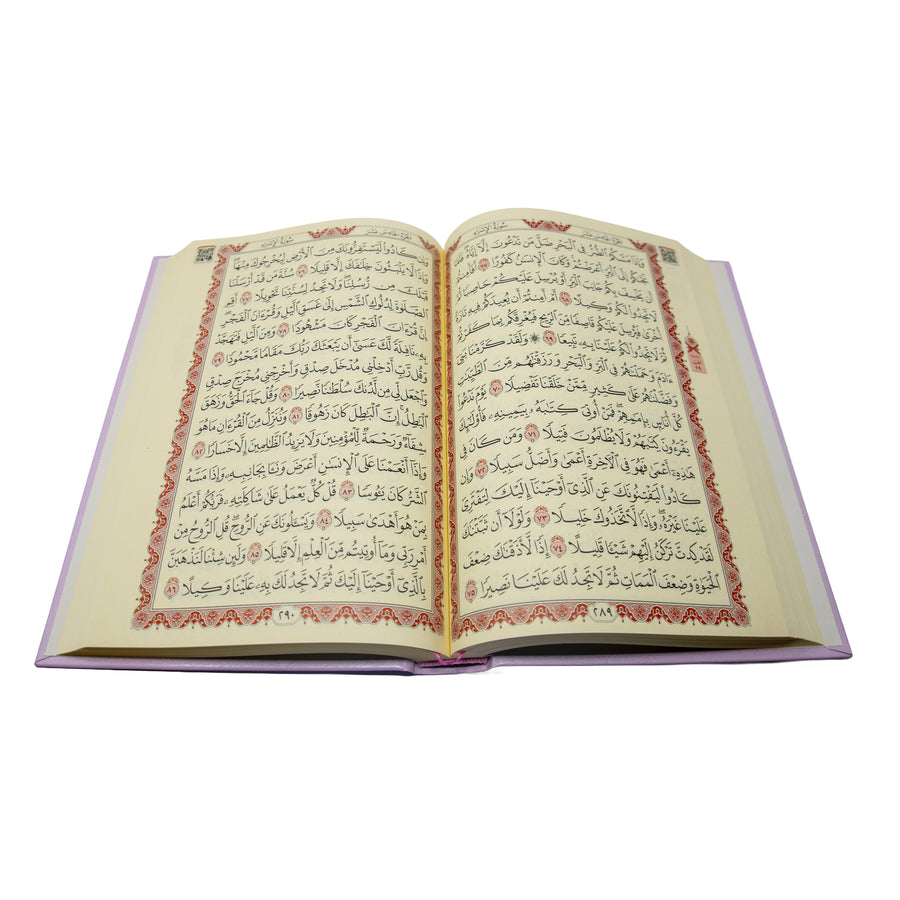 الجزء الخامس عشر
سورة الإسراء
وَإِذَا مَسَّكُمُ ٱلضُّرُّ فِى ٱلْبَحْرِ ضَلَّ مَن تَدْعُونَ إِلَّآ إِيَّاهُ فَلَمَّا
نَجَّىٰكُمْ إِلَى ٱلْبَرِّ أَعْرَضْتُمْ وَكَانَ ٱلْإِنسَٰنُ كَفُورًا ٦٧ أَفَأَمِنتُمْ
أَن يَخْسِفَ بِكُمْ جَانِبَ ٱلْبَرِّ أَوْ يُرْسِلَ عَلَيْكُمْ حَاصِبًا ثُمَّ
لَا تَجِدُوا۟ لَكُمْ وَكِيلًا ٦٨ أَمْ أَمِنتُمْ أَن يُعِيدَكُمْ فِيهِ تَارَةً
أُخْرَىٰ فَيُرْسِلَ عَلَيْكُمْ قَاصِفًا مِّنَ ٱلرِّيحِ فَيُغْرِقَكُم بِمَا كَفَرْتُمْ
ثُمَّ لَا تَجِدُوا۟ لَكُمْ عَلَيْنَا بِهِۦ تَبِيعًا ٦٩ ۞ وَلَقَدْ كَرَّمْنَا بَنِىٓ
ءَادَمَ وَحَمَلْنَٰهُمْ فِى ٱلْبَرِّ وَٱلْبَحْرِ وَرَزَقْنَٰهُم مِّنَ ٱلطَّيِّبَٰتِ
وَفَضَّلْنَٰهُمْ عَلَىٰ كَثِيرٍ مِّمَّنْ خَلَقْنَا تَفْضِيلًا ٧٠ يَوْمَ نَدْعُوا۟
كُلَّ أُنَاسٍۭ بِإِمَٰمِهِمْ فَمَنْ أُوتِىَ كِتَٰبَهُۥ بِيَمِينِهِۦ فَأُو۟لَٰٓئِكَ
يَقْرَءُونَ كِتَٰبَهُمْ وَلَا يُظْلَمُونَ فَتِيلًا ٧١ وَمَن كَانَ فِى
هَٰذِهِۦٓ أَعْمَىٰ فَهُوَ فِى ٱلْءَاخِرَةِ أَعْمَىٰ وَأَضَلُّ سَبِيلًا ٧٢ وَإِن
كَادُوا۟ لَيَفْتِنُونَكَ عَنِ ٱلَّذِىٓ أَوْحَيْنَآ إِلَيْكَ لِتَفْتَرِىَ
عَلَيْنَا غَيْرَهُۥ وَإِذًا لَّٱتَّخَذُوكَ خَلِيلًا ٧٣ وَلَوْلَآ أَن ثَبَّتْنَٰكَ
لَقَدْ كِدتَّ تَرْكَنُ إِلَيْهِمْ شَيْـًٔا قَلِيلًا ٧٤ إِذًا لَّأَذَقْنَٰكَ ضِعْفَ
ٱلْحَيَوٰةِ وَضِعْفَ ٱلْمَمَاتِ ثُمَّ لَا تَجِدُ لَكَ عَلَيْنَا نَصِيرًا ٧٥
٢٨٩
الجزء الخامس عشر
سورة الإسراء
وَإِن كَادُوا۟ لَيَسْتَفِزُّونَكَ مِنَ ٱلْأَرْضِ لِيُخْرِجُوكَ مِنْهَا
وَإِذًا لَّا يَلْبَثُونَ خِلَٰفَكَ إِلَّا قَلِيلًا ٧٦ سُنَّةَ مَن قَدْ أَرْسَلْنَا
قَبْلَكَ مِن رُّسُلِنَا وَلَا تَجِدُ لِسُنَّتِنَا تَحْوِيلًا ٧٧ أَقِمِ
ٱلصَّلَوٰةَ لِدُلُوكِ ٱلشَّمْسِ إِلَىٰ غَسَقِ ٱلَّيْلِ وَقُرْءَانَ ٱلْفَجْرِ
إِنَّ قُرْءَانَ ٱلْفَجْرِ كَانَ مَشْهُودًا ٧٨ وَمِنَ ٱلَّيْلِ فَتَهَجَّدْ
بِهِۦ نَافِلَةً لَّكَ عَسَىٰٓ أَن يَبْعَثَكَ رَبُّكَ مَقَامًا مَّحْمُودًا ٧٩
وَقُل رَّبِّ أَدْخِلْنِى مُدْخَلَ صِدْقٍ وَأَخْرِجْنِى مُخْرَجَ صِدْقٍ
وَٱجْعَل لِّى مِن لَّدُنكَ سُلْطَٰنًا نَّصِيرًا ٨٠ وَقُلْ جَآءَ ٱلْحَقُّ وَزَهَقَ
ٱلْبَٰطِلُ إِنَّ ٱلْبَٰطِلَ كَانَ زَهُوقًا ٨١ وَنُنَزِّلُ مِنَ ٱلْقُرْءَانِ مَا هُوَ
شِفَآءٌ وَرَحْمَةٌ لِّلْمُؤْمِنِينَ وَلَا يَزِيدُ ٱلظَّٰلِمِينَ إِلَّا خَسَارًا ٨٢
وَإِذَآ أَنْعَمْنَا عَلَى ٱلْإِنسَٰنِ أَعْرَضَ وَنَـَٔا بِجَانِبِهِۦ وَإِذَا مَسَّهُ
ٱلشَّرُّ كَانَ يَـُٔوسًا ٨٣ قُلْ كُلٌّ يَعْمَلُ عَلَىٰ شَاكِلَتِهِۦ فَرَبُّكُمْ أَعْلَمُ
بِمَنْ هُوَ أَهْدَىٰ سَبِيلًا ٨٤ وَيَسْـَٔلُونَكَ عَنِ ٱلرُّوحِ قُلِ ٱلرُّوحُ مِنْ
أَمْرِ رَبِّى وَمَآ أُوتِيتُم مِّنَ ٱلْعِلْمِ إِلَّا قَلِيلًا ٨٥ وَلَئِن شِئْنَا لَنَذْهَبَنَّ
بِٱلَّذِىٓ أَوْحَيْنَآ إِلَيْكَ ثُمَّ لَا تَجِدُ لَكَ بِهِۦ عَلَيْنَا وَكِيلًا ٨٦
٢٩٠